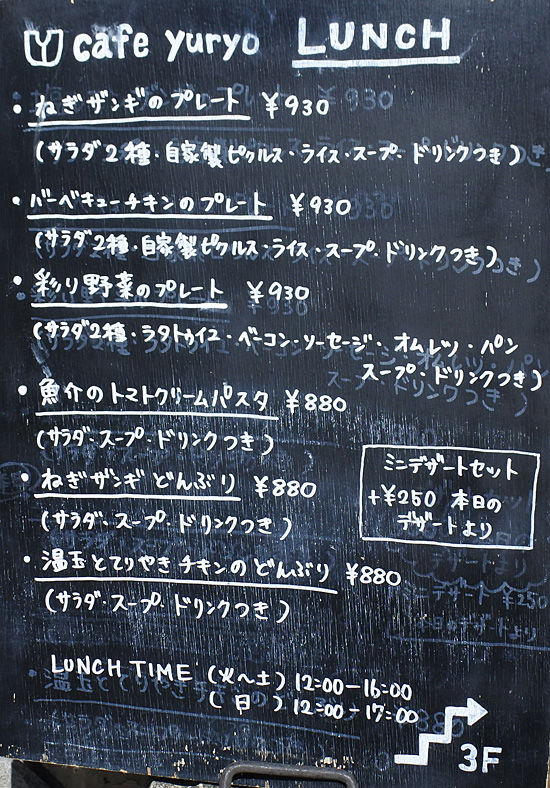 cafe yuryo LUNCH
・ねぎザンギのプレート ¥930
(サラダ2種・自家製ピクルス・ライス・スープ・ドリンクつき)
・バーベキューチキンのプレート ¥930
(サラダ2種・自家製ピクルス・ライス・スープ・ドリンクつき)
・彩り野菜のプレート ¥930
(サラダ2種・ラタトゥイユ・ベーコン・ソーセージ・オムレツ・パン
スープ・ドリンクつき)
・魚介のトマトクリームパスタ ¥880
(サラダ・スープ・ドリンクつき)
・ねぎザンギどんぶり ¥880
(サラダ・スープ・ドリンクつき)
・温玉とてりやきチキンのどんぶり ¥880
(サラダ・スープ・ドリンクつき)
ミニデザートセット
+¥250 本日の
デザートより
LUNCH TIME (火〜土) 12:00-16:00
(日) 12:00-17:00
3F